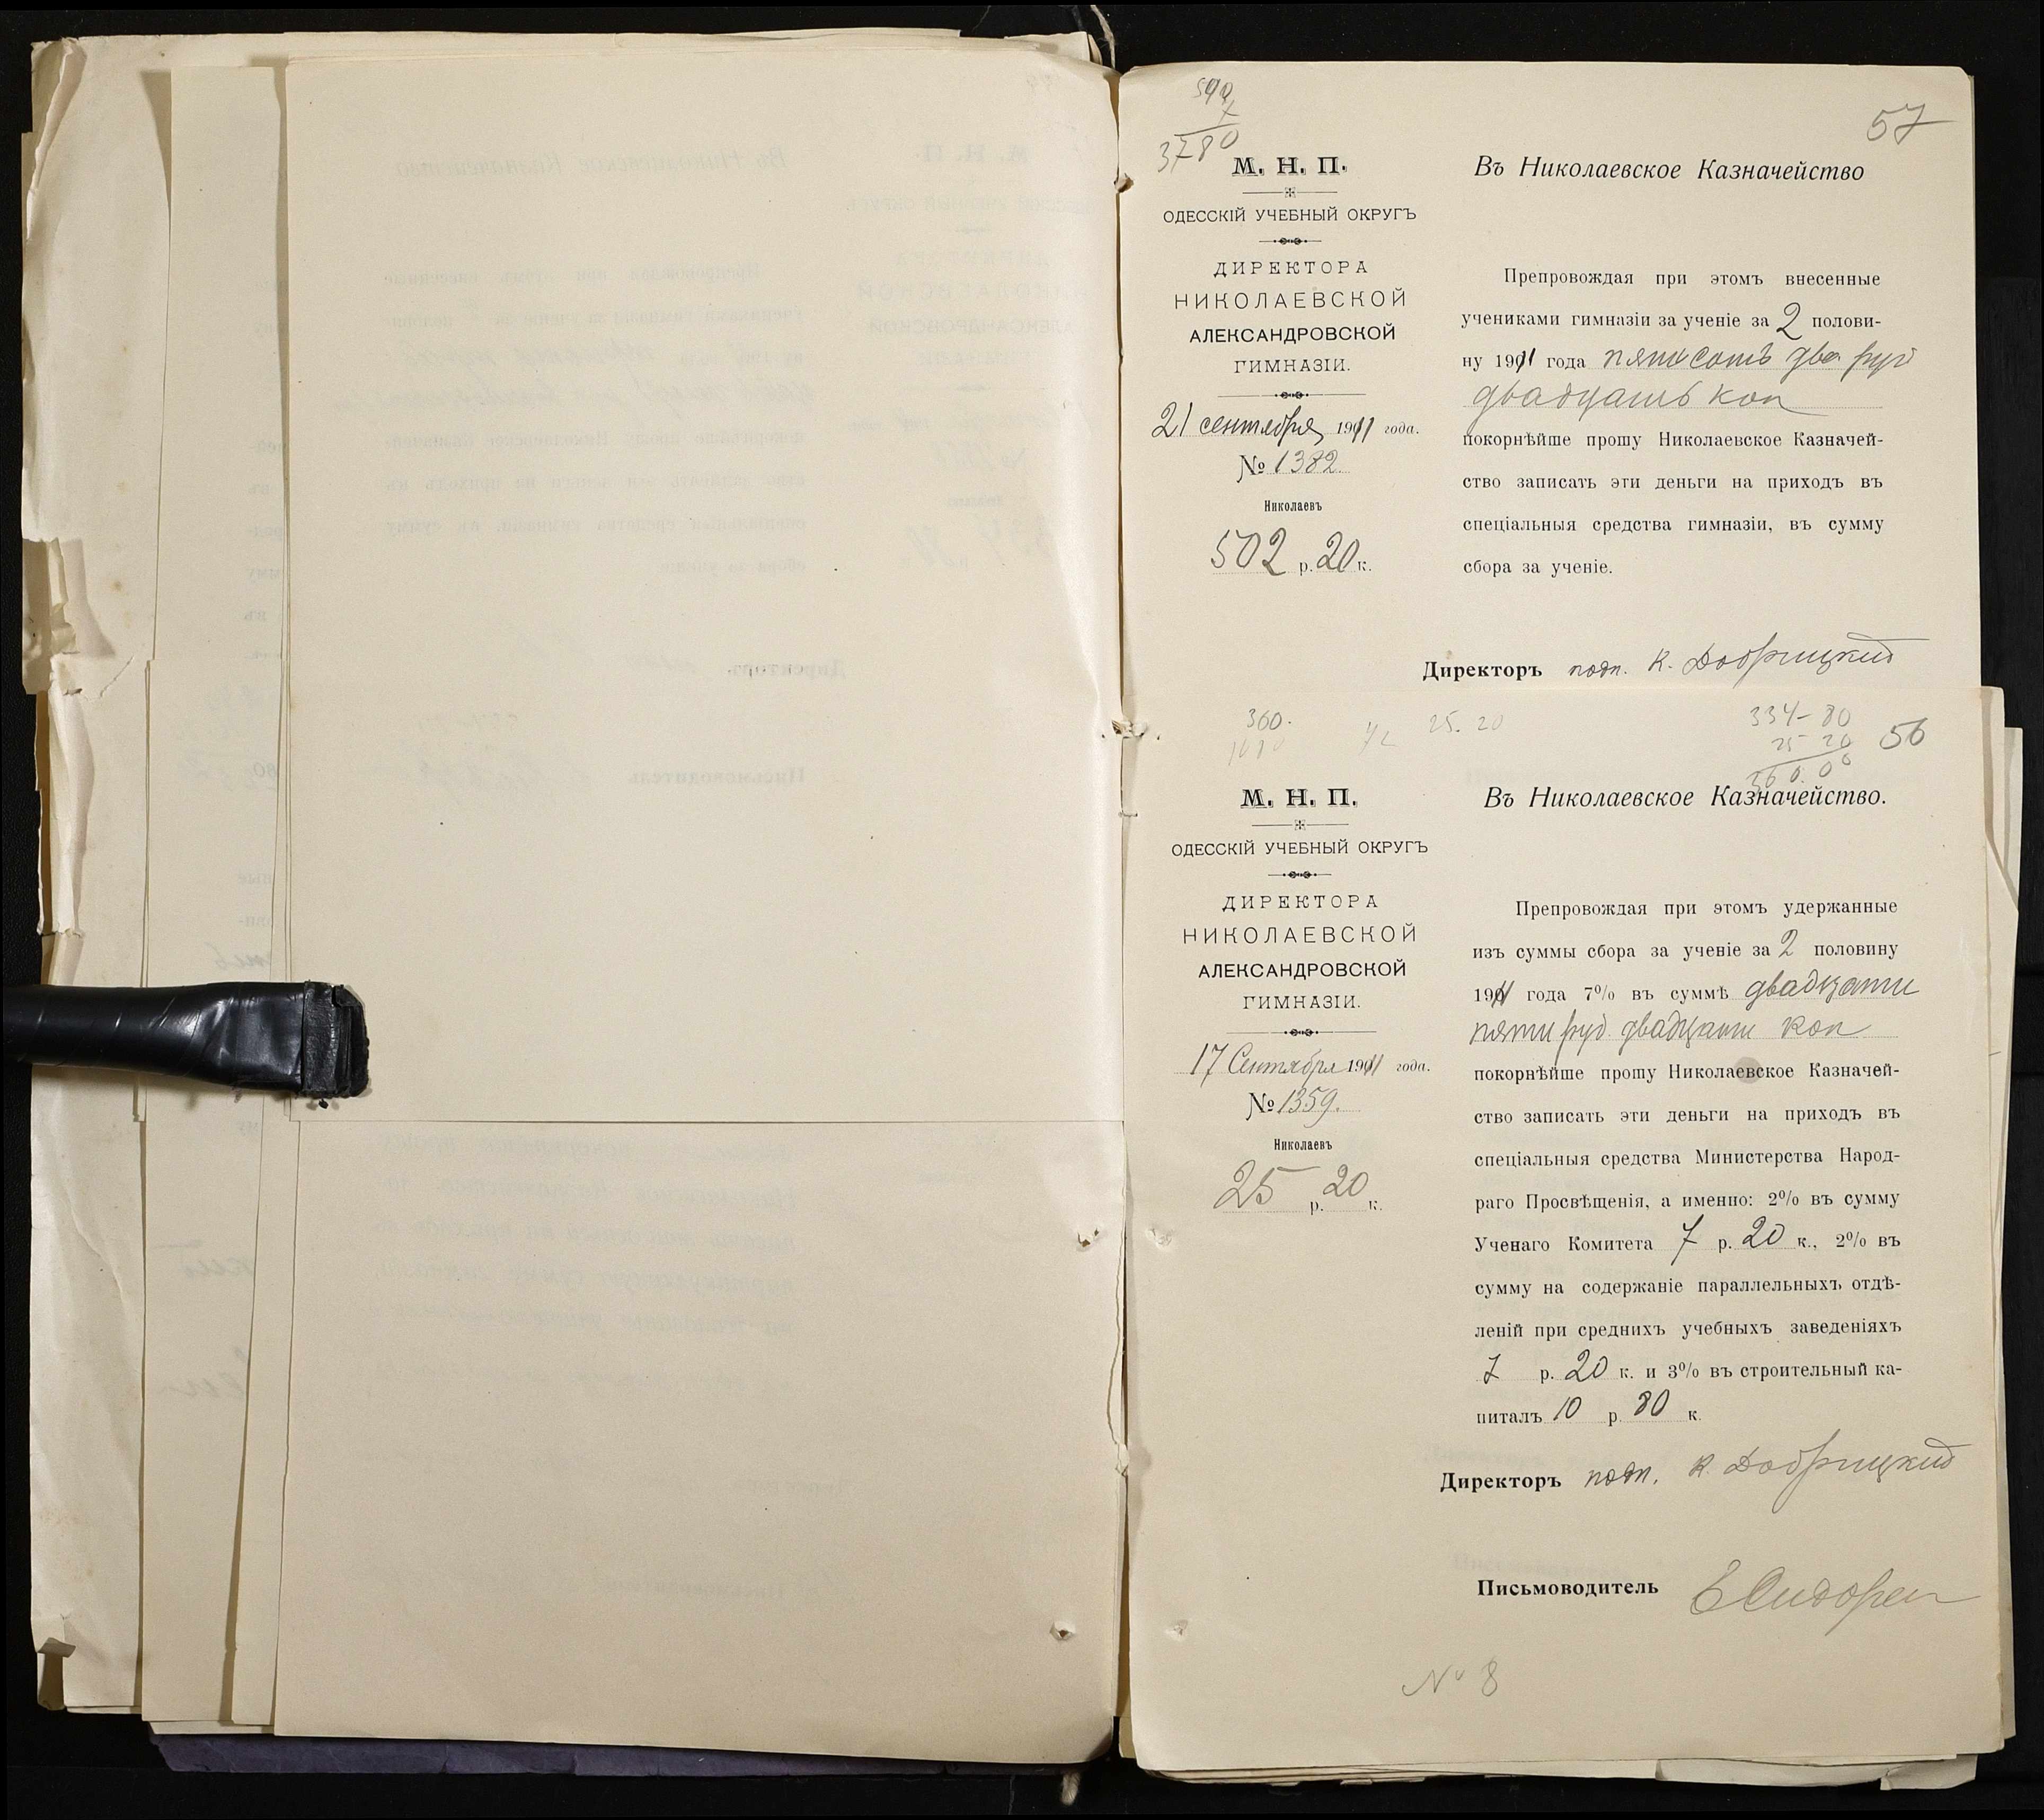 540
7
3780
57
М. Н. П.
ОДЕССКІЙ УЧЕБНЫЙ ОКРУГЪ
ДИРЕКТОРА
НИКОЛАЕВСКОЙ
АЛЕКСАНДРОВСКОЙ
ГИМНАЗІИ.
21 сентября 1911 года.
№ 1382.
Николаевъ
502 р. 20 к.
Въ Николаевское Казначейство
Препровождая при этомъ внесенные
учениками гимназіи за ученіе за 2 полови-
ну 1911 года пятьсотъ два руб
двадцать коп
покорнѣйше прошу Николаевское Казначей-
ство записать эти деньги на приходъ въ
спеціальныя средства гимназіи, въ сумму
сбора за ученіе.
Директоръ подп. К. Добрицкий
360.
25. 20
334-80
25 20
360.00
56
М. Н. П.
ОДЕССКІЙ УЧЕБНЫЙ ОКРУГЪ
ДИРЕКТОРА
НИКОЛАЕВСКОЙ
АЛЕКСАНДРОВСКОЙ
ГИМНАЗІИ.
17 Сентября 1911 года.
№ 1359.
Николаевъ
25 р. 20 к.
Въ Николаевское Казначейство.
Препровождая при этомъ удержанные
изъ суммы сбора за ученіе за 2 половину
1911 года 7% въ суммѣ двадцати
пяти руб. двадцати коп
покорнѣйше прошу Николаевское Казначей-
ство записать эти деньги на приходъ въ
спеціальныя средства Министерства Народ-
раго Просвѣщенія, а именно: 2% въ сумму
Ученаго Комитета 7 р. 20 к., 2% въ
сумму на содержаніе параллельныхъ отдѣ-
леній при среднихъ учебныхъ заведеніяхъ
7 р. 20 к. и 3% въ строительный ка-
питалъ 10 р. 80 к.
Директоръ подп. К. Добрицкий
Письмоводитель Е Сидорен
№ 8